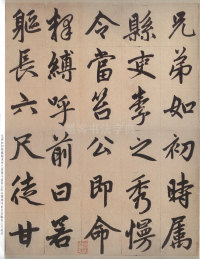 兄弟如初時属
縣吏李之秀慢
令當笞公即命
釋縛呼前曰若
軀長六尺徒甘